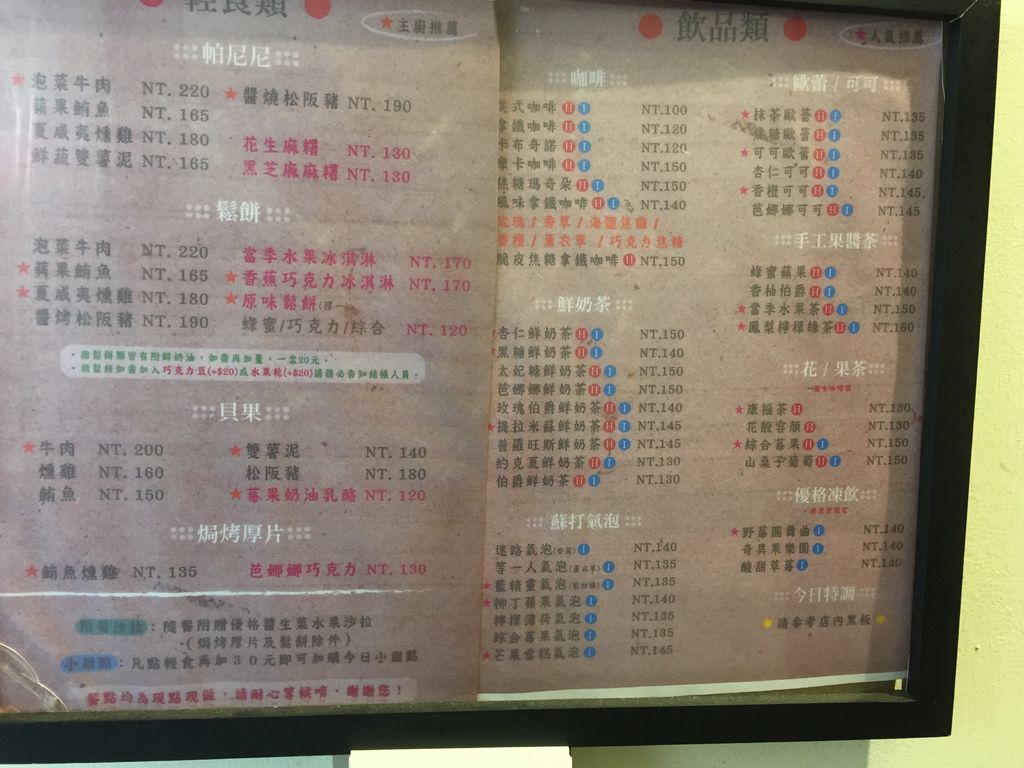 輕食類
★主廚推薦
帕尼尼
★泡菜牛肉 NT. 220
蘋果鮪魚 NT. 165
夏威夷燻雞 NT. 180
鮮蔬雙薯泥 NT. 165
★醬燒松阪豬 NT. 190
花生麻糬 NT. 130
黑芝麻麻糬 NT. 130
鬆餅
泡菜牛肉 NT. 220
★蘋果鮪魚 NT. 165
★夏威夷燻雞 NT. 180
醬烤松阪豬 NT. 190
當季水果冰淇淋 NT. 170
★香蕉巧克力冰淇淋 NT. 170
★原味鬆餅(擇一)
蜂蜜/巧克力/綜合 NT. 120
·甜鬆餅類皆有附鮮奶油,如需再加量,一盅20元。
·甜鬆餅如需加入巧克力豆(+$20)或水果乾(+$20)請務必告知結帳人員。
貝果
★牛肉 NT. 200
燻雞 NT. 160
鮪魚 NT. 150
★雙薯泥 NT. 140
松阪豬 NT. 180
★莓果奶油乳酪 NT. 120
焗烤厚片
★鮪魚燻雞 NT. 135
芭娜娜巧克力 NT. 130
附餐沙拉:隨餐附贈優格醬生菜水果沙拉
(焗烤厚片及鬆餅除外)
小甜點:凡點輕食再加30元即可加購今日小甜點
餐點均為現點現做,請耐心等候唷,謝謝您!
飲品類
★人氣推薦
咖啡
美式咖啡 H I NT.100
拿鐵咖啡 H I NT.120
卡布奇諾 H I NT.120
摩卡咖啡 H I NT.150
焦糖瑪奇朵 H I NT.150
風味拿鐵咖啡 H I NT.140
玫瑰/香草/海鹽焦糖/
香橙/薰衣草/巧克力焦糖
脆皮焦糖拿鐵咖啡 H NT.150
鮮奶茶
杏仁鮮奶茶 H I NT.150
黑糖鮮奶茶 H I NT.140
太妃糖鮮奶茶 H I NT.150
芭娜娜鮮奶茶 H I NT.150
玫瑰伯爵鮮奶茶 H I NT.140
★提拉米蘇鮮奶茶 H I NT.145
普羅旺斯鮮奶茶 H I NT.145
約克夏鮮奶茶 H I NT.130
伯爵鮮奶茶 H I NT.130
蘇打氣泡
迷路氣泡(香蕉) I NT.140
等一人氣泡(薰衣草) I NT.135
★藍精靈氣泡 I NT.135
★柳丁蘋果氣泡 I NT.140
檸檬薄荷氣泡 I NT.135
綜合莓果氣泡 I NT.135
★芒果雪糕氣泡 I NT.145
歐蕾/可可
★抹茶歐蕾 H I NT.135
焦糖歐蕾 H I NT.135
★可可歐蕾 H I NT.135
杏仁可可 H I NT.140
★香橙可可 H I NT.145
芭娜娜可可 H I NT.145
手工果醬茶
蜂蜜蘋果 H I NT.140
香柚伯爵 H I NT.140
★當季水果茶 H I NT.150
★鳳梨檸檬綠茶 H I NT.160
花/果茶
★康福茶 H NT.130
花般容顏 H NT.130
★綜合莓果 H I NT.150
山桑子葡萄 H I NT.150
優格凍飲
★野莓圓舞曲 I NT.140
奇異果樂園 I NT.140
酸甜草莓 I NT.140
今日特調
請參考店內黑板